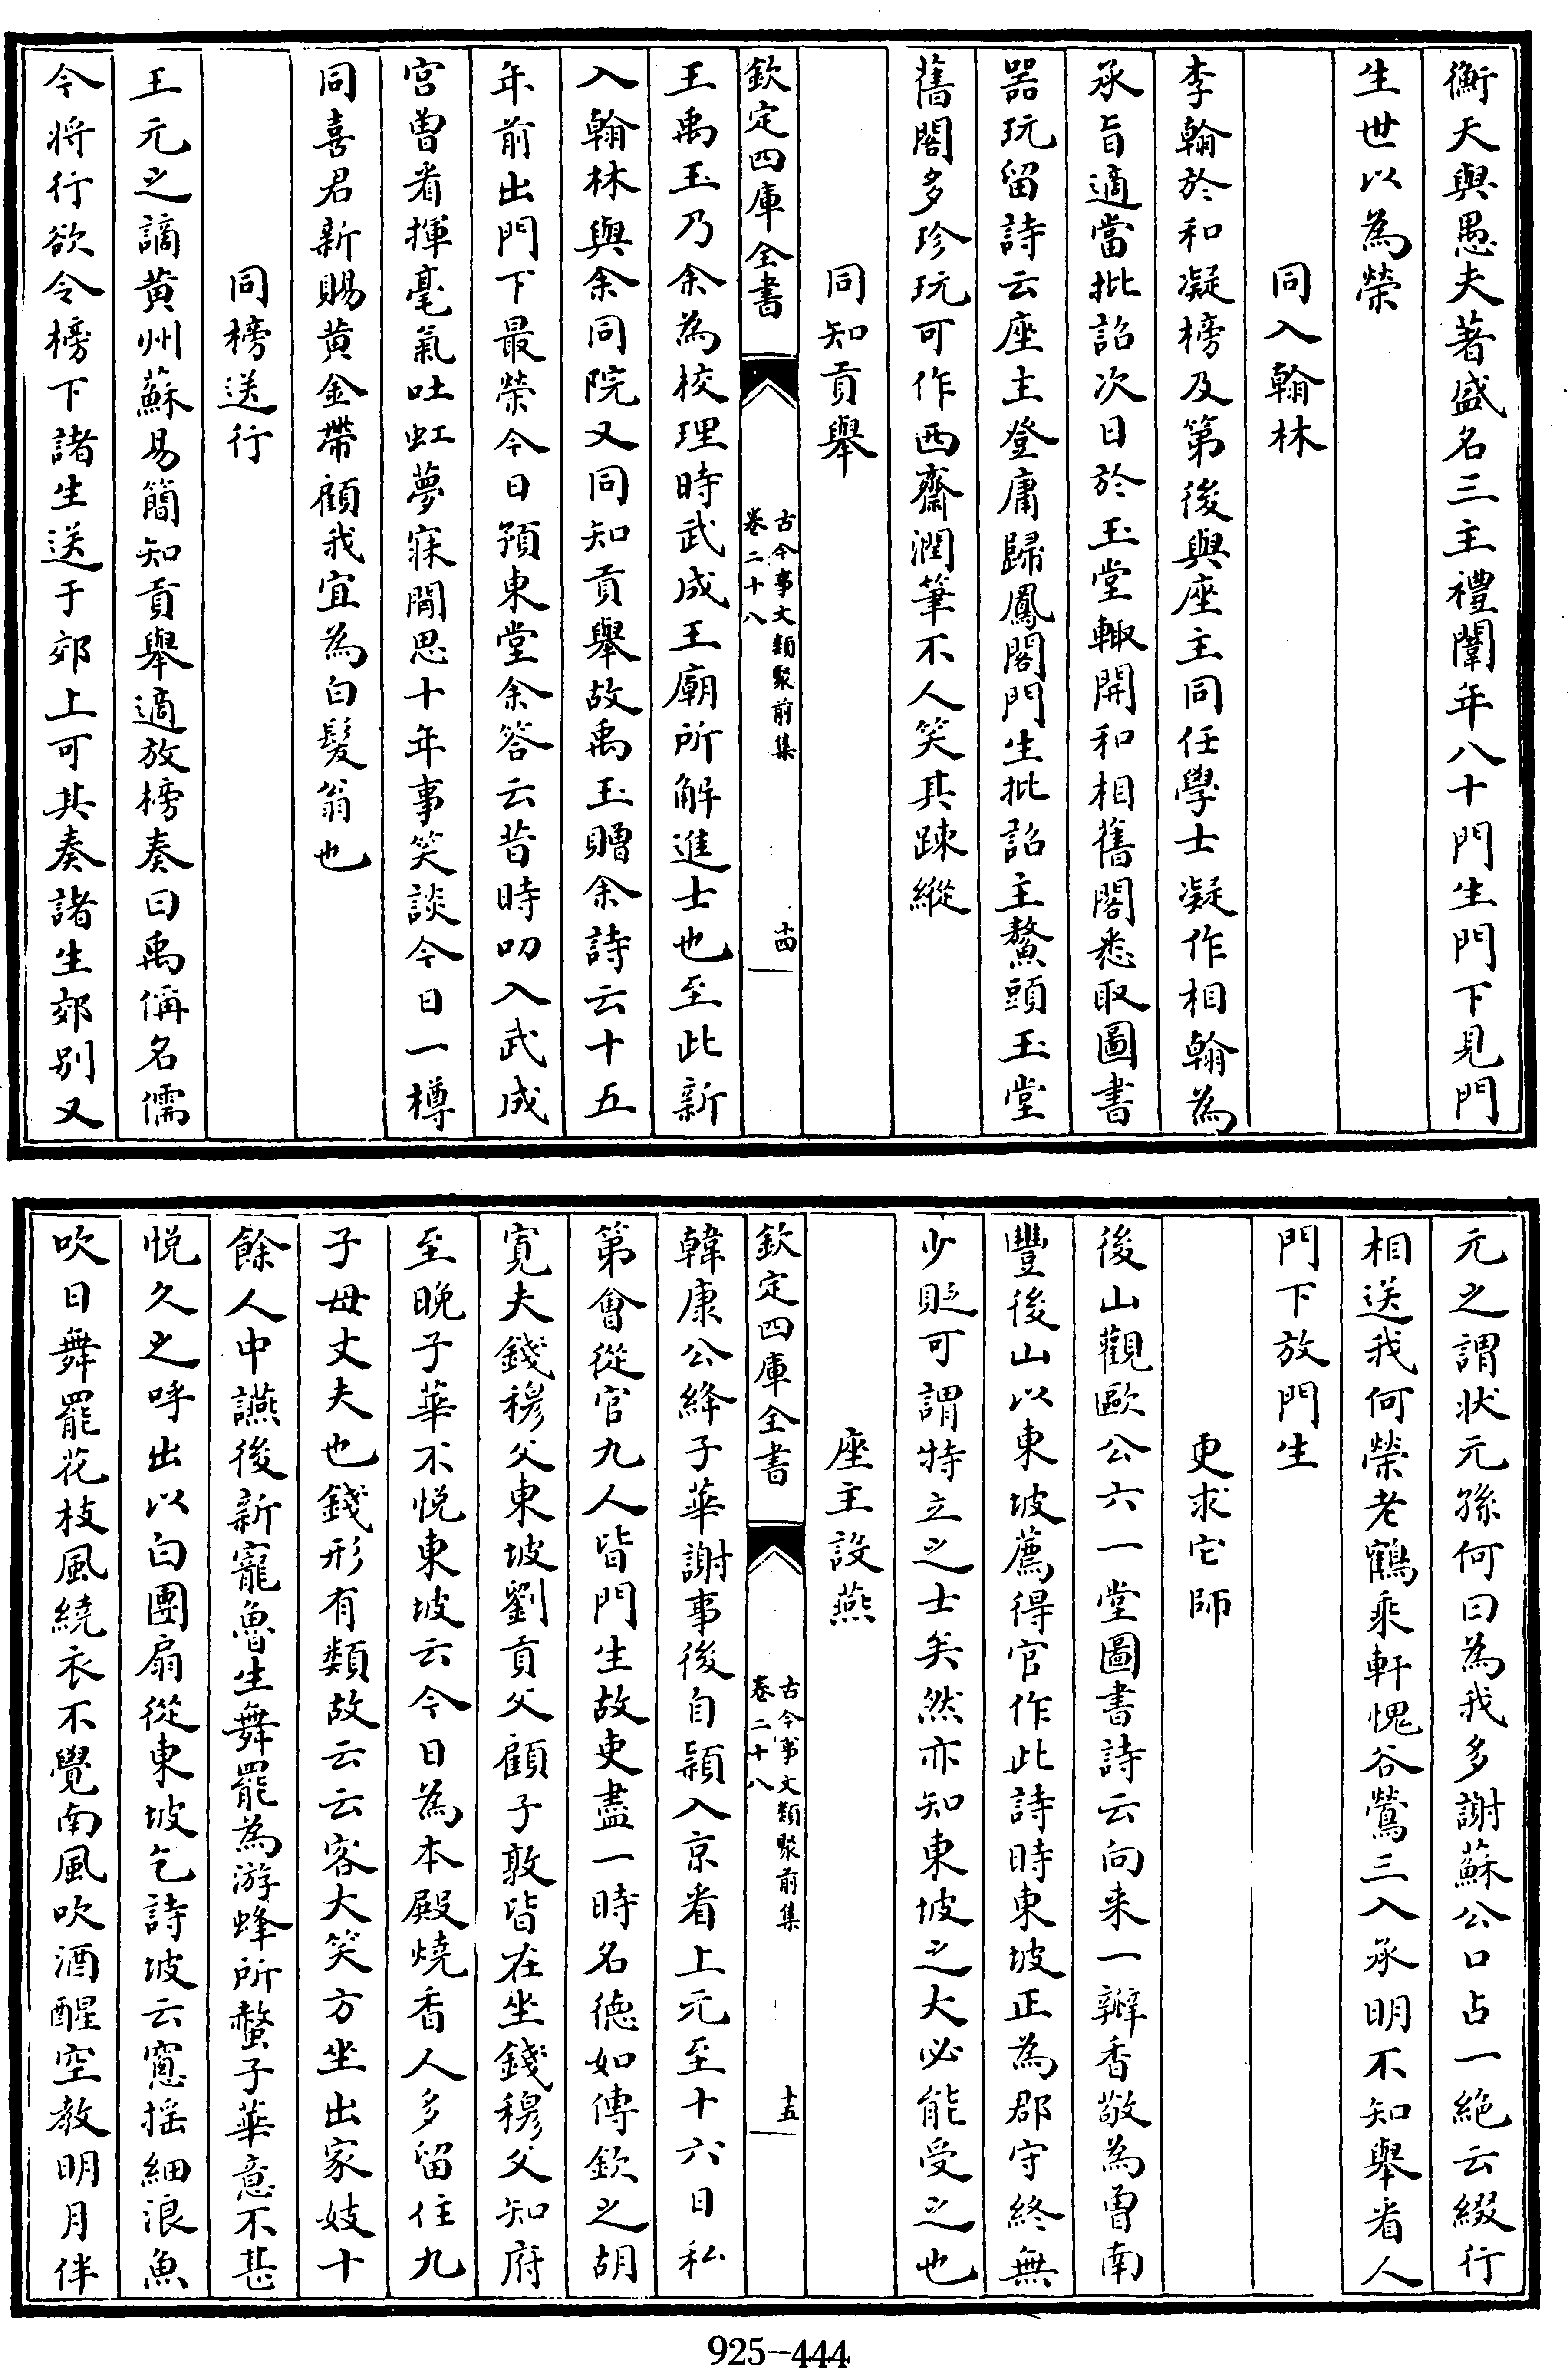 衡天與愚夫著盛名三主禮闈年八十門生門下見門
生世以為榮
同入翰林
李翰於和凝榜及第後與座主同任學士凝作相翰為
承旨適當批詔次日於玉堂輙開和相舊閣悉取圖書
器玩留詩云座主登庸歸鳳閣門生批詔主鰲頭玉堂
舊閣多珍玩可作西齋潤筆不人笑其踈縱
同知貢舉
欽定四庫全書
古今事文類聚前集
卷二十八
十四
王禹玉乃余為校理時武成王廟所解進士也至此新
入翰林與余同院又同知貢舉故禹玉贈余詩云十五
年前出門下最榮今日預東堂余答云昔時叨入武成
宫曾看揮毫氣吐虹夢寐閒思十年事笑談今日一樽
同喜君新賜黄金帶顧我宜為白髮翁也
同榜送行
王元之謫黄州蘇易簡知貢舉適放榜奏曰禹偁名儒
今將行欲令榜下諸生送于郊上可其奏諸生郊別又
元之謂状元孫何曰為我多謝蘇公口占一絶云綴行
相送我何榮老鶴乘軒愧谷鶯三入承明不知舉看人
門下放門生
更求它師
後山觀歐公六一堂圖書詩云向来一瓣香敬為曾南
豐後山以東坡薦得官作此詩時東坡正為郡守終無
少貶可謂特立之士矣然亦知東坡之大必能受之也
座主設燕
欽定四庫全書
古今事文類聚前集
卷二十八
十五
韓康公絳子華謝事後自頴入京看上元至十六日私
第會從官九人皆門生故吏盡一時名德如傅欽之胡
寛夫錢穆父東坡劉貢父顧子敦皆在坐錢穆父知府
至晚子華不悦東坡云今日為本殿燒香人多留住九
子母丈夫也錢形有類故云云客大笑方坐出家妓十
餘人中讌後新寵魯生舞罷為游蜂所螫子華意不甚
悦久之呼出以白團扇從東坡乞詩坡云窻揺細浪魚
吹日舞罷花枝風繞衣不覺南風吹酒醒空教明月伴
925-444